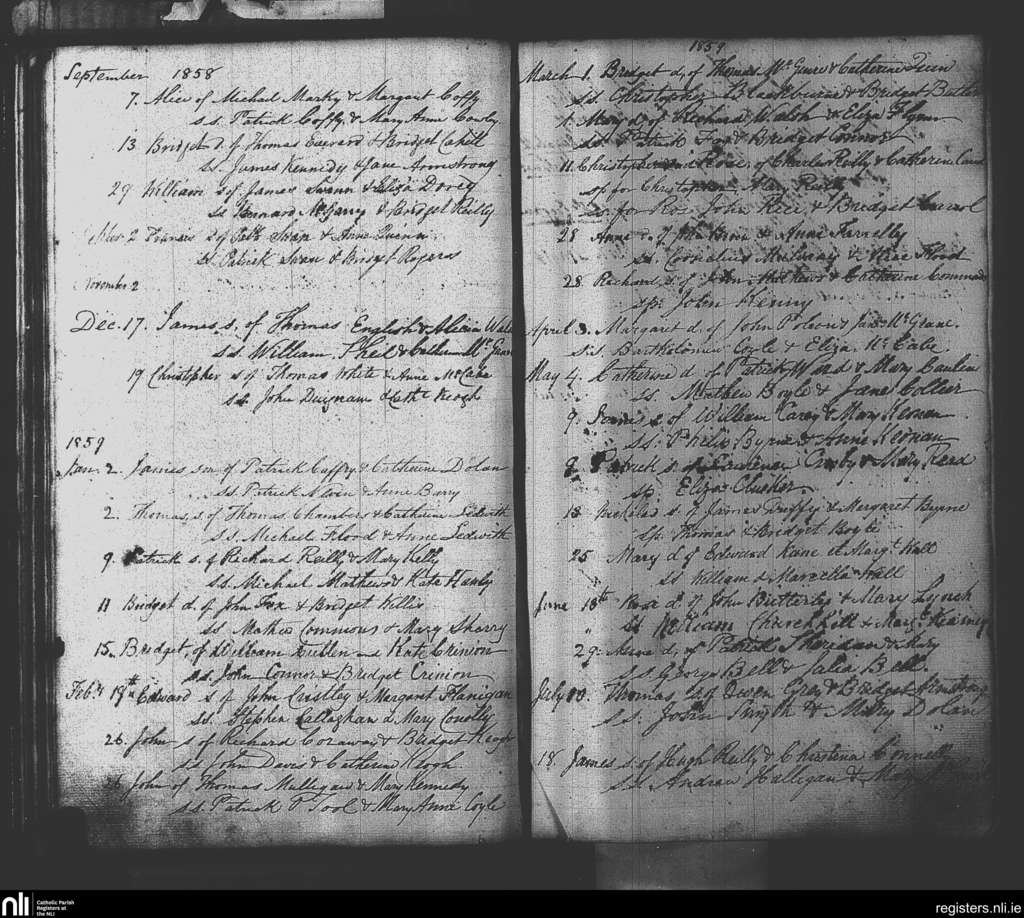 September 1858
7. Alice of Michael Marky & Margaret Coffy
ss. Patrick Coffy & Mary Anne
13 Bridget d. of Thomas & Bridget Cahill
ss. James Kennedy & Jane Armstrong
29 William s of James Swann & Eliza
ss Bernard McGarry & Bridget Reilly
2 Francis s of Swan & Anne Quinn
ss. Patrick Swan & Bridget Rogers
November 2
Dec. 17. James s. of Thomas English & Alicia
ss William Shiel &
19 Christopher s of Thomas White & Anne McCabe
ss. John Duignam & Cathe Keogh
1859
Jan. 2. James son of Patrick Caffry & Catherine Dolan
ss. Patrick & Anne Barry
2. Thomas, s. of Thomas Chambers & Catherine Ledwith
ss. Michael Flood & Anne Ledwith
9. Patrick s. of Richard Reilly & Mary Kelly
ss. Michael Mathews & Kate Hanly
11 Bridget d. of John Fox & Bridget Willis
ss. Mathew Commons & Mary Sharry
15. Bridget, of William Cullen and Kate Crinion
ss. John Connor & Bridget Crinion
Feby 19th Edward s of John Cristley & Margaret Flanigan
ss. Stephen Callaghan & Mary Conolly
26. John s of Richard & Bridget Keogh
ss John Davis & Catherine Keogh
John of Thomas Mulligan & Mary Kennedy
ss. Patrick O Tool & Mary Anne Coyle
1859
March 1. Bridget d, of Thomas McGuire & Catherine
ss. Christopher Blackburne & Bridget
Mary d, of Richard Walsh & Eliza Flynn
ss. Patrick Fox & Bridget Connor
11. Christopher and Rose, of Charles Reilly & Catherine
sp for Christopher Mary Reilly
ss. for Rose John Rice & Bridget Carrol
28 Anne d. of John & Anne Farrelly
ss. Cornelius & Flood
28 Richard s. of John Mathews & Catherine
sp. John Kenny
April 3. Margaret d. of John & Jane McGrane.
ss. Bartholomew Coyle & Eliza McCabe
May 4. Catherine d of Patrick Ward & Mary
ss. Mathew Boyle & Jane Collier
9. s of William Carey & Mary Keenan
ss. Phelix Byrne & Anne Keenan
8 Patrick s. of Laurence & Mary
sp Eliza Clusker.
18 Nicholas s of James Duffy & Margaret Byrne
Sp. Thomas & Bridget Boyle
25 Mary d of Edward Kane et Margt. Wall
ss William & Marcella Wall
June 18th Rose d. of John Butterley & Mary Lynch
ss William & Margt. Kearney
29. d, of Patrick Sheridan & Mary
ss. George Bell & Julia Bell.
July 10. Thomas s. of Owen Grey & Bridget Armstrong
ss: John Smyth & Mary Dolan
18. James s. of Hugh Reilly & Christina Connelly
ss. Andrew Halligan & Mary
nli
Catholic Parish
Registers at
the NLI
registers.nli.ie